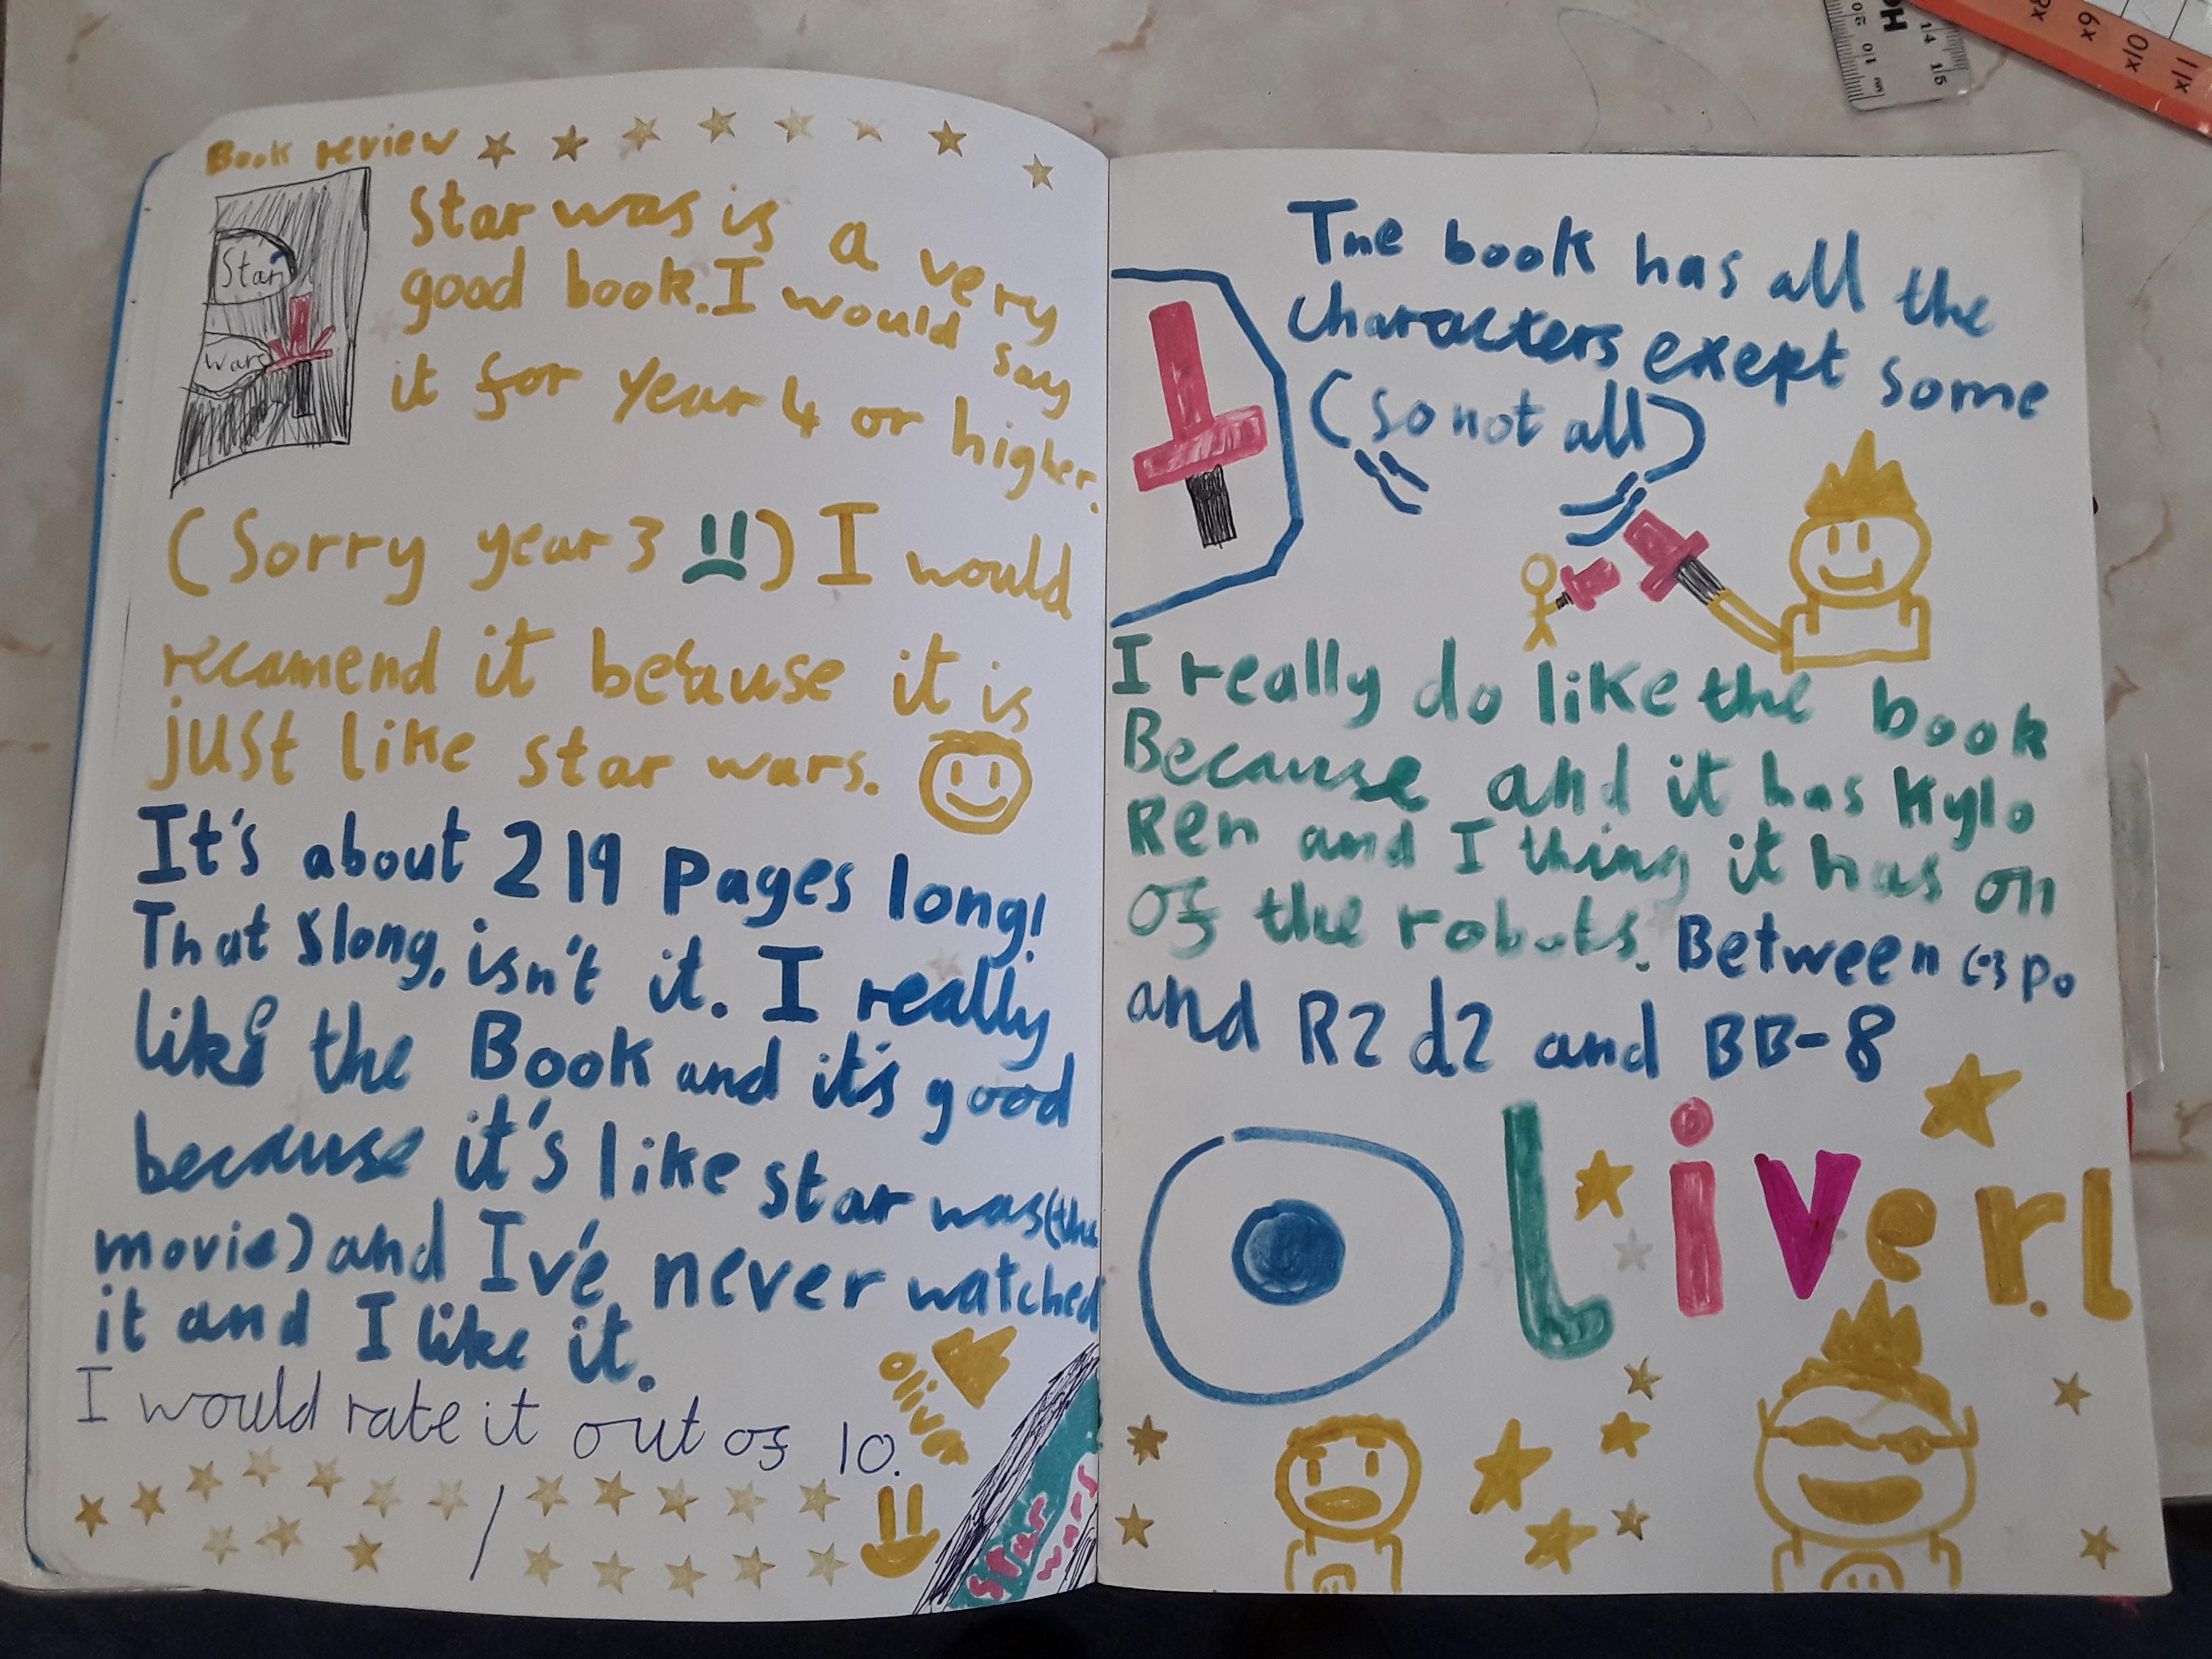 Book review
Star
wars
Star was is a very
good book. I would say
it for year 4 or higher.
(Sorry year 3 ) I would
recamend it because it is
just like star wars.
It's about 219 pages long!
That Slong, isn't it. I really
like the Book and it's good
because it's like star was (the
movie) and I'v'e never watched
it and I like it.
I would rate it out of 10.
oliver
/
Star
wars
The book has all the
characters exept some
(so not all)
I really do like the book
Because and it has Kylo
Ren and I thing it has on
of the robots. Between c3po
and R2d2 and BB-8
Oliver.
8x
9x
10x
11x
14 15